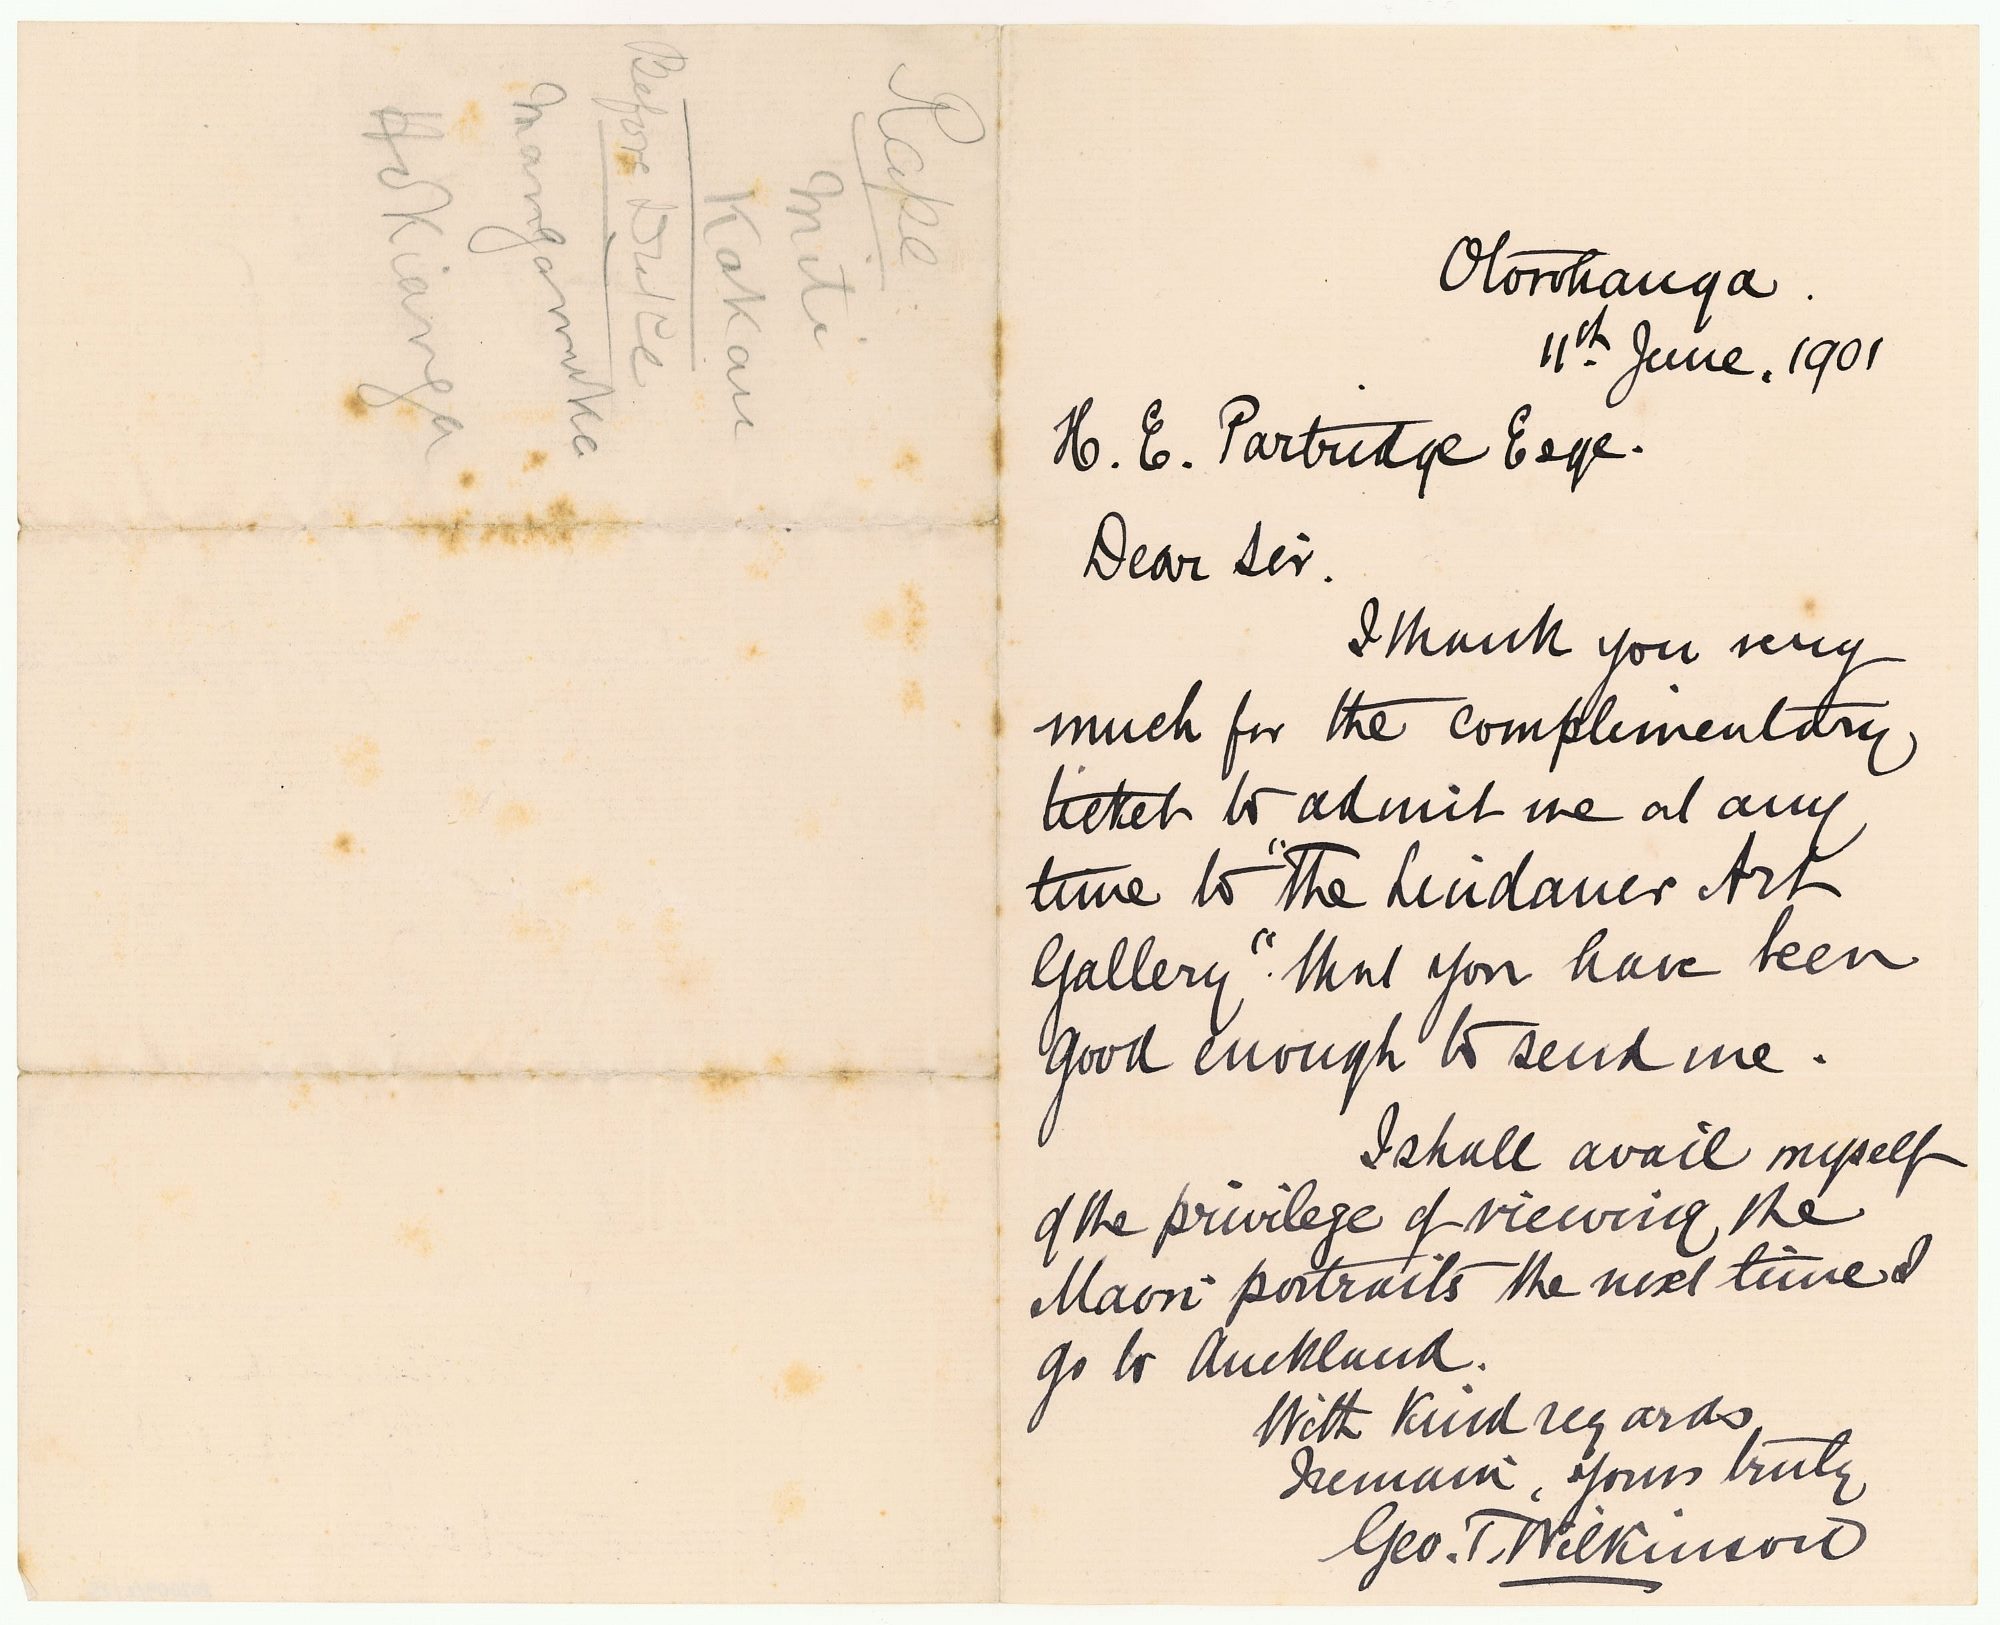 Otorohanga.
11th June. 1901
H. E. Partridge Esqe.
Dear Sir.
I thank you very
much for the complimentary
ticket to admit me at any
time to "The Lindauer Art
Gallery". that you have been
good enough to send me.
I shall avail myself
of the privilege of viewing the
Maori portraits the next time I
go to Auckland.
With Kind regards
I remain, yours truly
Geo. T. Wilkinson
Rape
Miti
Kakau
Before
Mangamuka
Hokianga